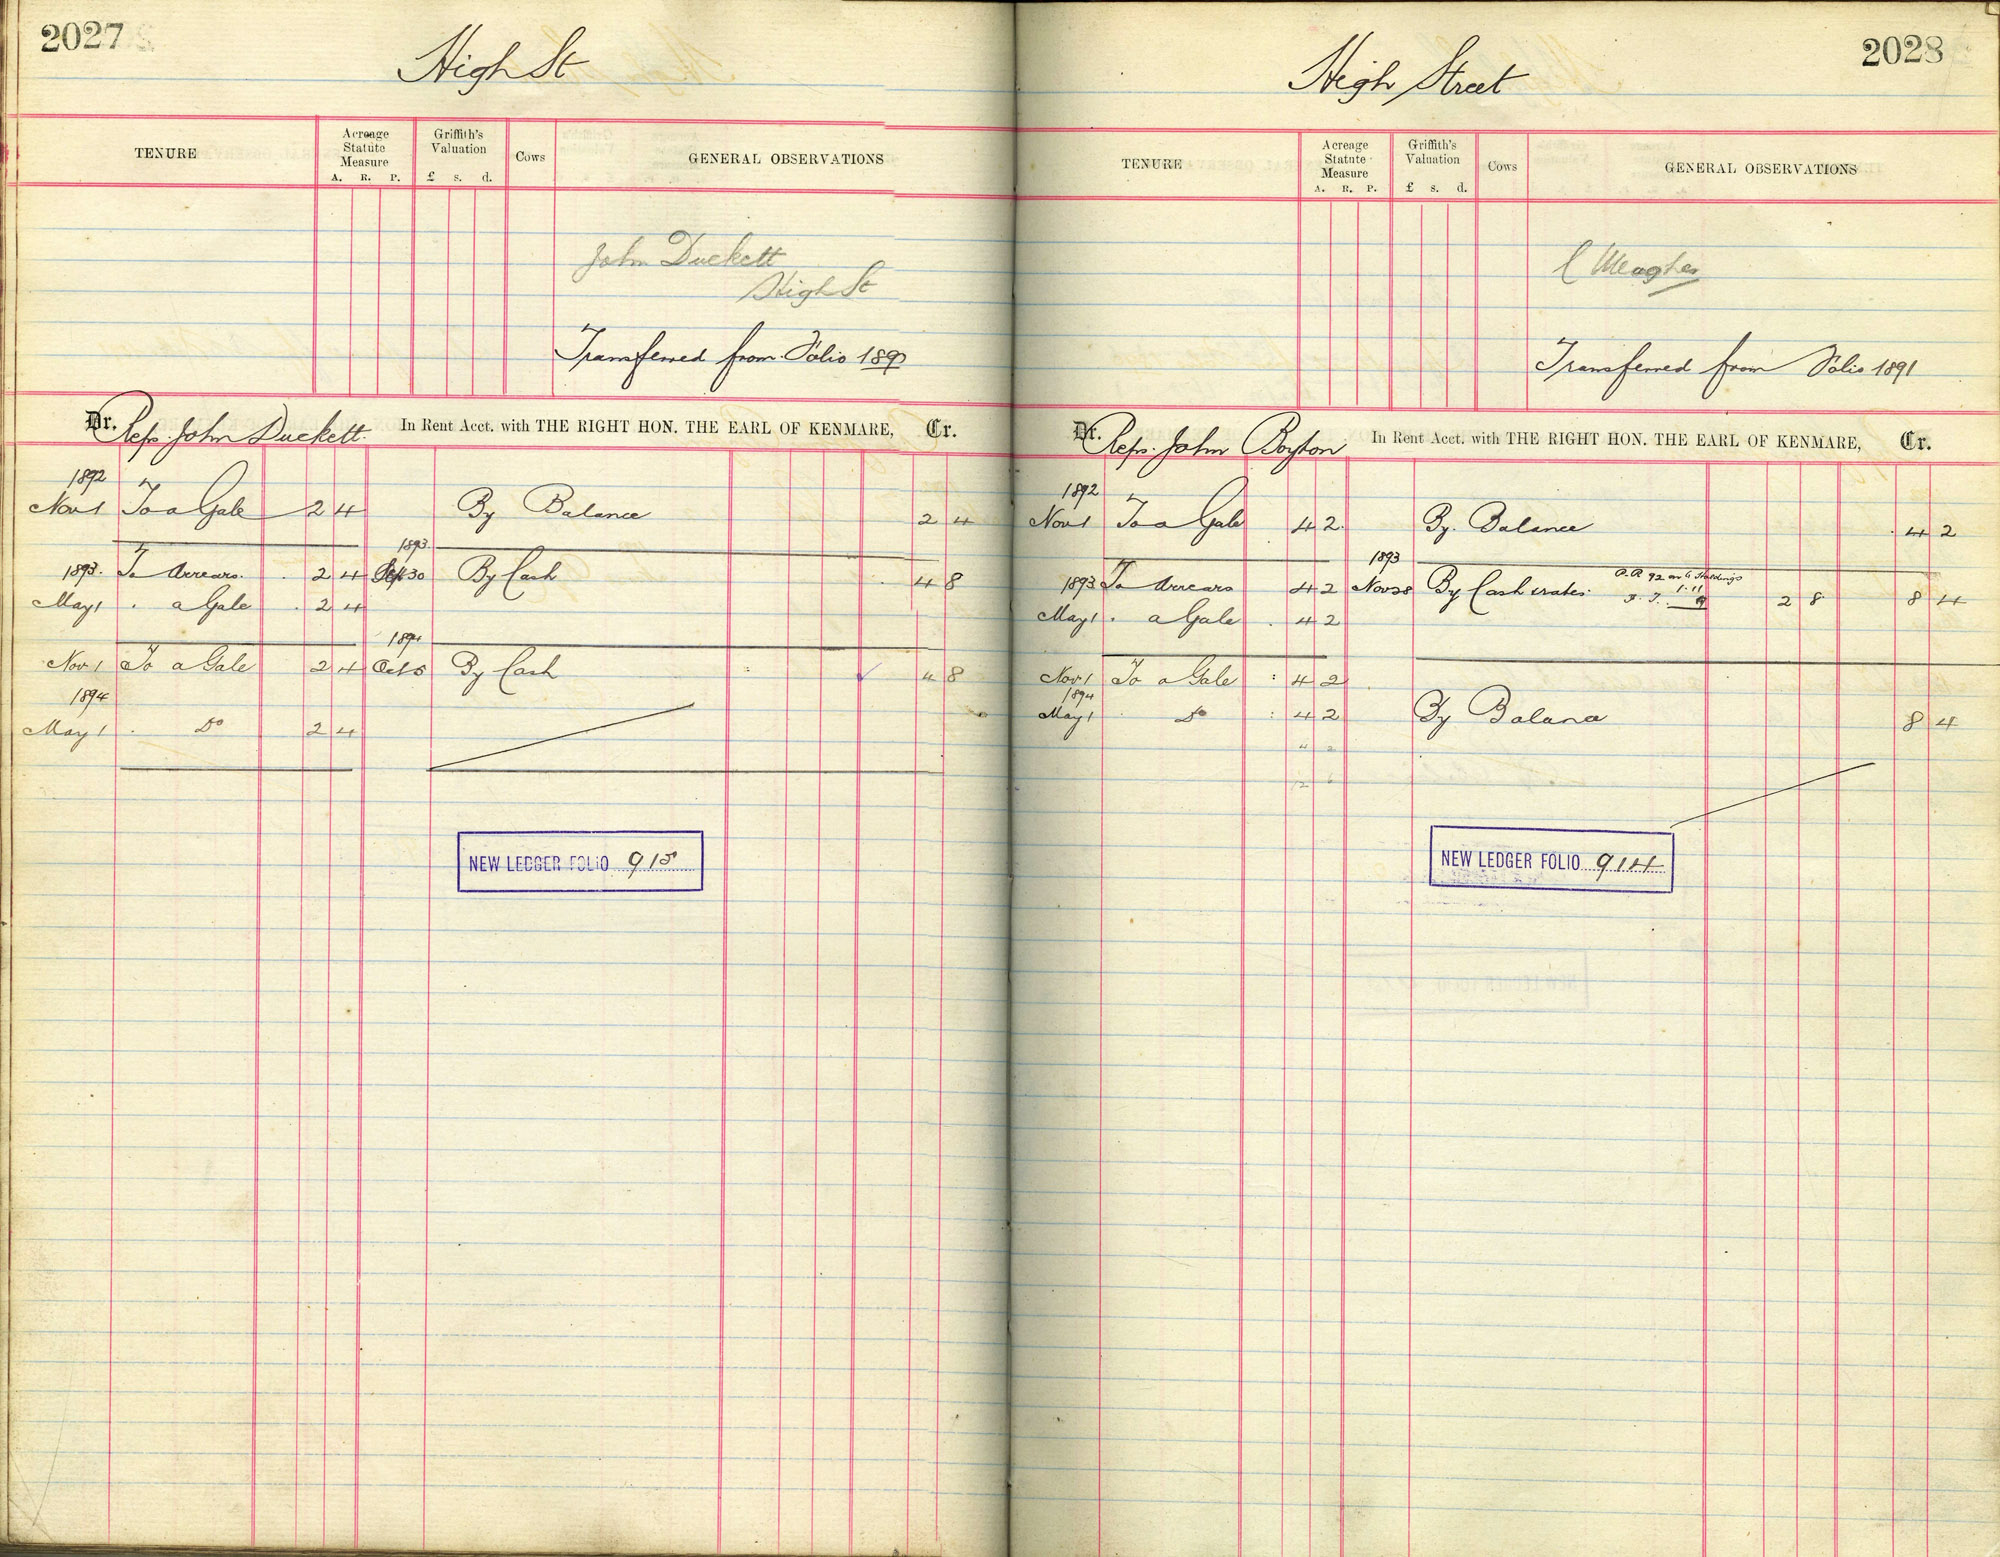 2027
High St
TENURE
Acreage Statute Measure
A. R. P.
Griffith's Valuation
£ s. d.
Cows
GENERAL OBSERVATIONS
John Duckett
High St
Transferred from Folio 1890
Dr. Reps. John Duckett In Rent Acct. with THE RIGHT HON. THE EARL OF KENMARE, Cr.
1892
Nov 1 To a Gale 2 4 By Balance 2 4
1893
1893. To Arrears. 2 4 Sept 30 By Cash 4 8
May 1 . a Gale 2 4
1894
Nov. 1 To a Gale 2 4 Oct 5 By Cash 4 8
1894
May 1 . Do 2 4
NEW LEDGER FOLIO 915
2028
High Street
TENURE
Acreage Statute Measure
A. R. P.
Griffith's Valuation
£ s. d.
Cows
GENERAL OBSERVATIONS
C Meagher
Transferred from Folio 1891
Dr. Reps. John Boyton In Rent Acct. with THE RIGHT HON. THE EARL OF KENMARE, Cr.
1892
Nov 1 To a Gale 4 2 By. Balance 4 2
1893
1893 To Arrears 4 2 Nov 28 By Cash & rates. P.R 92 on 6 Holdings 1.11
9 2 8 8 4
May 1 . a Gale 4 2
Nov 1 To a Gale 4 2
1894
May 1 Do 4 2 By Balance 8 4
4 2
12 6
NEW LEDGER FOLIO 914